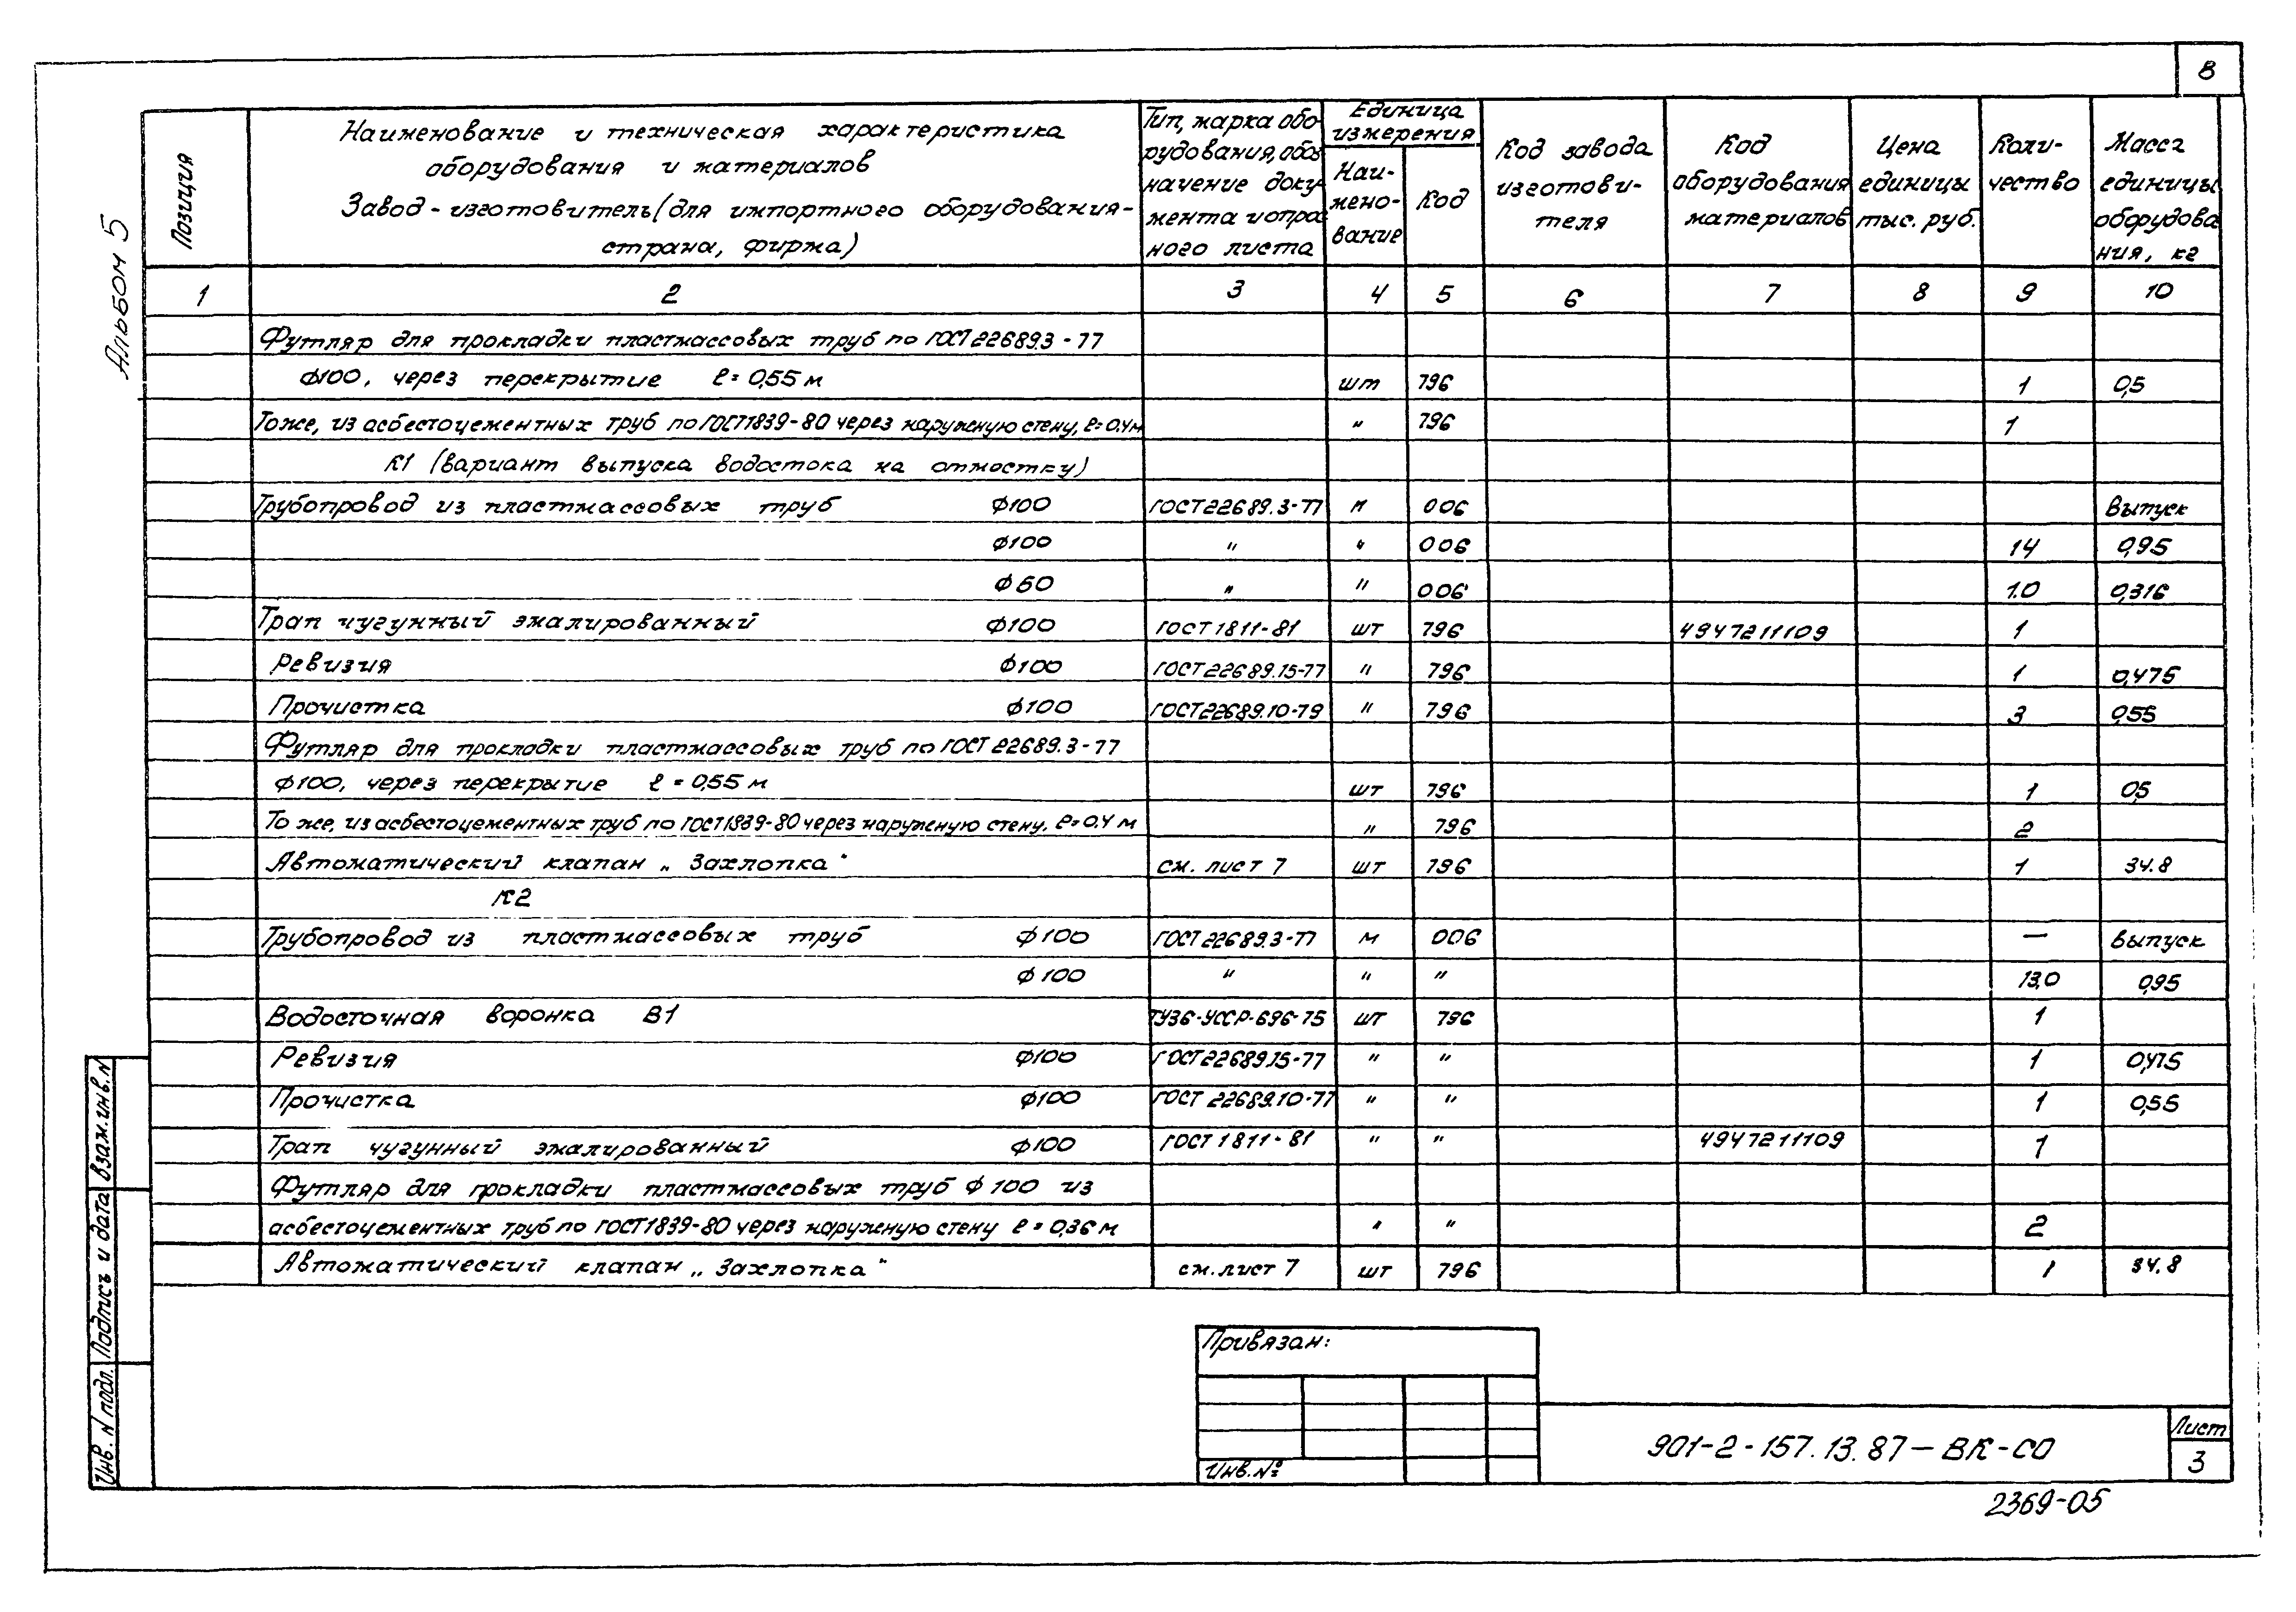 8
Альбом 5
Позиция
Наименование и техническая характеристика
оборудования и материалов
Завод-изготовитель (для импортного оборудования-
страна, фирма)
Тип, марка обо-
рудования, обоз
начение доку-
мента и опрос
ного листа
Единица
измерения
Наи-
мено-
вание
Код
Код завода
изготови-
теля
Код
оборудования
материалов
Цена
единицы
тыс. руб.
Коли-
чество
Масса
единицы
оборудова
ния, кг
1 2 3 4 5 6 7 8 9 10
Футляр для прокладки пластмассовых труб по ГОСТ 22689.3-77
ф100, через перекрытие ℓ=0,55 м шт 796 1 0,5
То же, из асбестоцементных труб по ГОСТ 1839-80 через наружную стену, ℓ=0.4м " 796 1
К1 (вариант выпуска водостока на отмостку)
Трубопровод из пластмассовых труб ф100 ГОСТ 22689.3-77 м 006 Выпуск
ф100 " " 006 14 0,95
ф50 " " 006 1.0 0,316
Трап чугунный эмалированный ф100 ГОСТ 1811-81 шт 796 4947211109 1
Ревизия ф100 ГОСТ 22689.15-77 " 796 1 0,475
Прочистка ф100 ГОСТ 22689.10-79 " 796 3 0,55
Футляр для прокладки пластмассовых труб по ГОСТ 22689.3-77
ф100, через перекрытие ℓ=0,55 м шт 796 1 0,5
То же, из асбестоцементных труб по ГОСТ 1839-80 через наружную стену, ℓ=0.4 м " 796 2
Автоматический клапан „Захлопка" см. лист 7 шт 796 1 34.8
К2
Трубопровод из пластмассовых труб ф100 ГОСТ 22689.3-77 м 006 — выпуск
ф100 " " " 13,0 0,95
Водосточная воронка В1 ТУ36-УССР-696-75 шт 796 1
Ревизия ф100 ГОСТ 22689.15-77 " " 1 0,475
Прочистка ф100 ГОСТ 22689.10-77 " " 1 0,55
Трап чугунный эмалированный ф100 ГОСТ 1811-81 " " 4947211109 1
Футляр для прокладки пластмассовых труб ф100 из
асбестоцементных труб по ГОСТ 1839-80 через наружную стену ℓ=0,36 м " " 2
Автоматический клапан „Захлопка" см. лист 7 шт 796 1 34.8
Инв. N подл.
Подпись и дата
Взам. инв. N
Привязан:
Инв. №
901-2-157.13.87-ВК-СО
Лист
3
2369-05